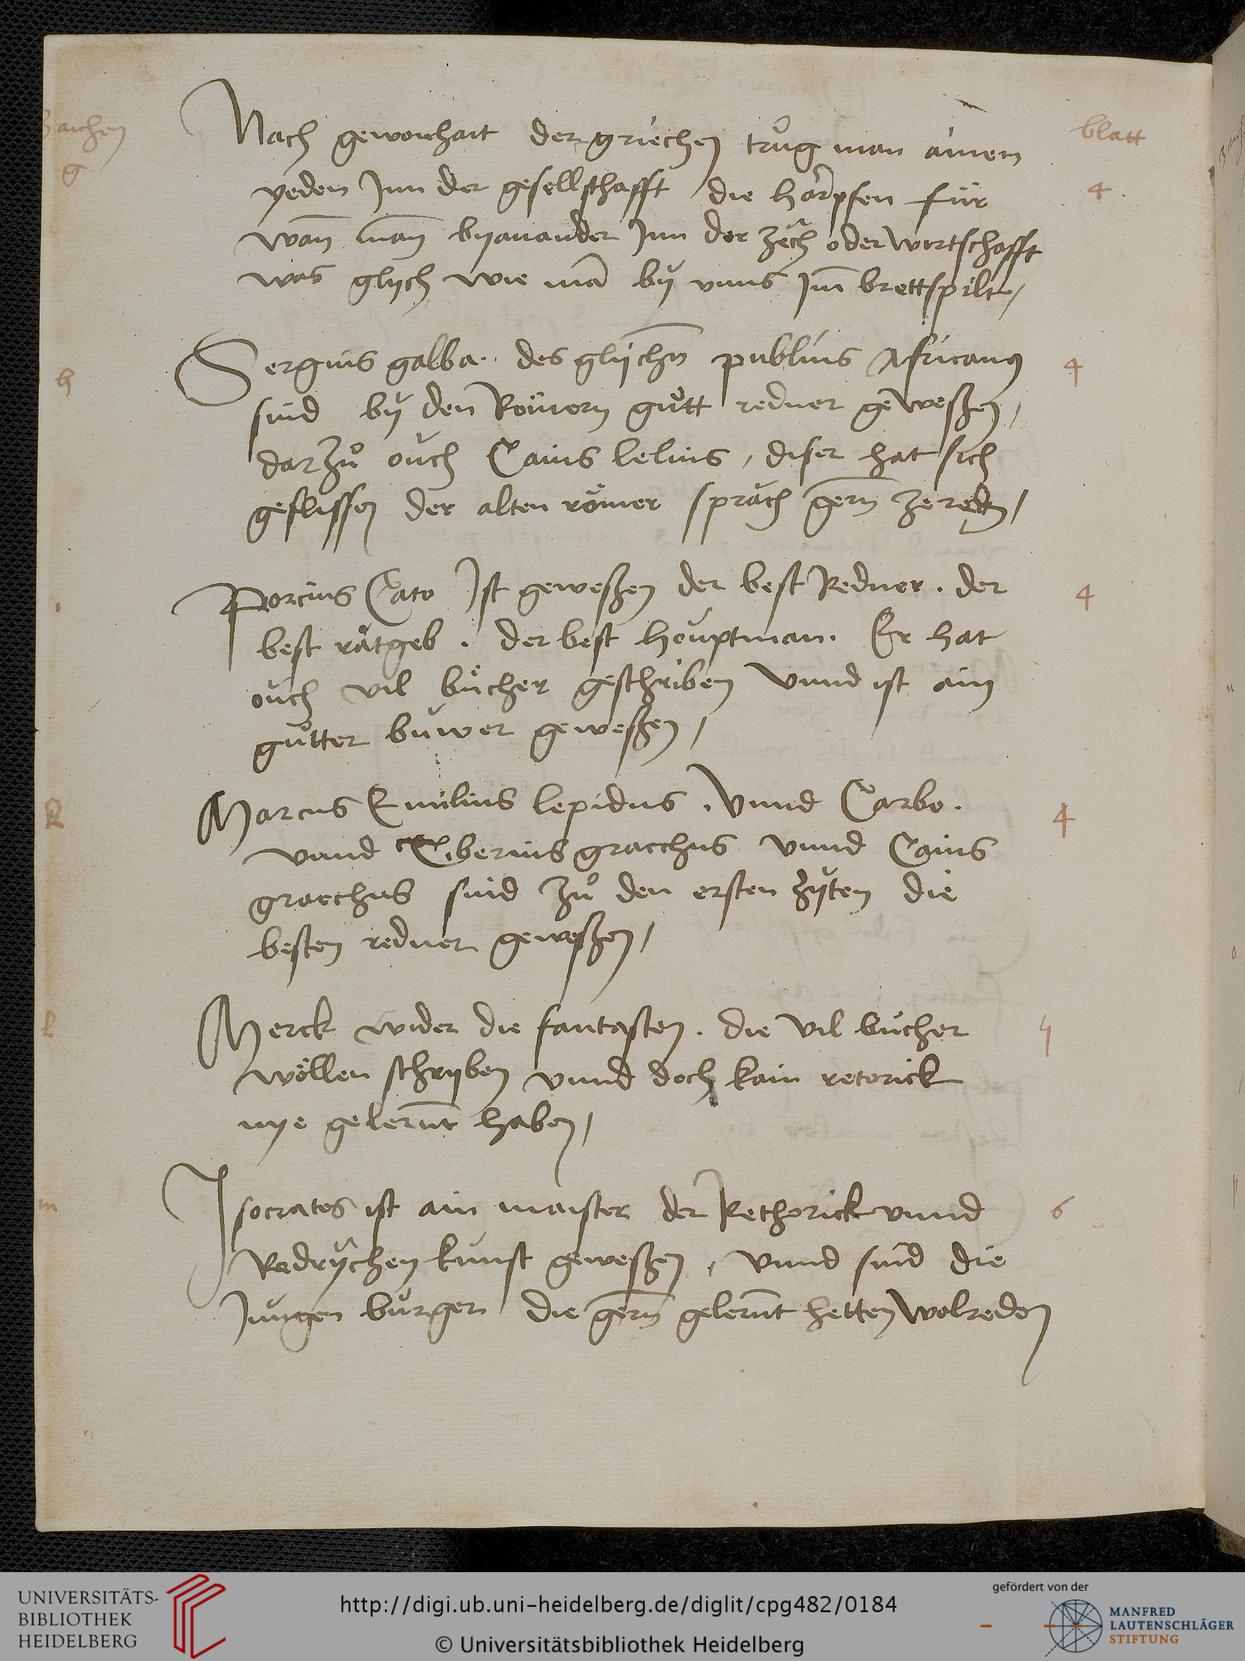 Zaichen
blatt
Nach gewonhait der griechen trůg man ainem
g
yeden Jnn der gesellschafft die harpfen für
4
wan̄ man̄ byainander Jnn der zech oder wirtschafft
was glych wie mā by vnns Jm̄ brettspilt /
Sergius galba. des glychn̄ publius Africanus
h
4
sind by den Römern gůtt redner geweßen /
darzů ouch Caius lelius, diser hat sich
geflissen der alten römer sprach gern̄ ze redn /
Porcius Cato Jst geweßen der best Redner. der
4
best rätgeb. der best houptman. Er hat
ouch vil bücher geschriben Vnnd ist ain
gůtter buwer geweßen /
Marcus Emilius lepidus. Vnnd Carbo.
k
4
vnnd Tiberius gracchus vnnd Caius
gracchus sind zů den ersten zyten die
besten redner geweßen /
Merck wider die fantasten. die vil bücher
l
wöllen schryben vnnd doch kain retorick
nye gelernt̄ haben /
m
Jsocrates ist ain maister der Rethorick vnnd
6
Redrychen kunst geweßen, vnnd sind die
Jungen burger die gern̄ gelernt̄ hetten wolreden
UNIVERSITÄTS-
BIBLIOTHEK
HEIDELBERG
http://digi.ub.uni-heidelberg.de/diglit/cpg482/0184
© Universitätsbibliothek Heidelberg
gefördert von der
MANFRED
LAUTENSCHLÄGER
STIFTUNG